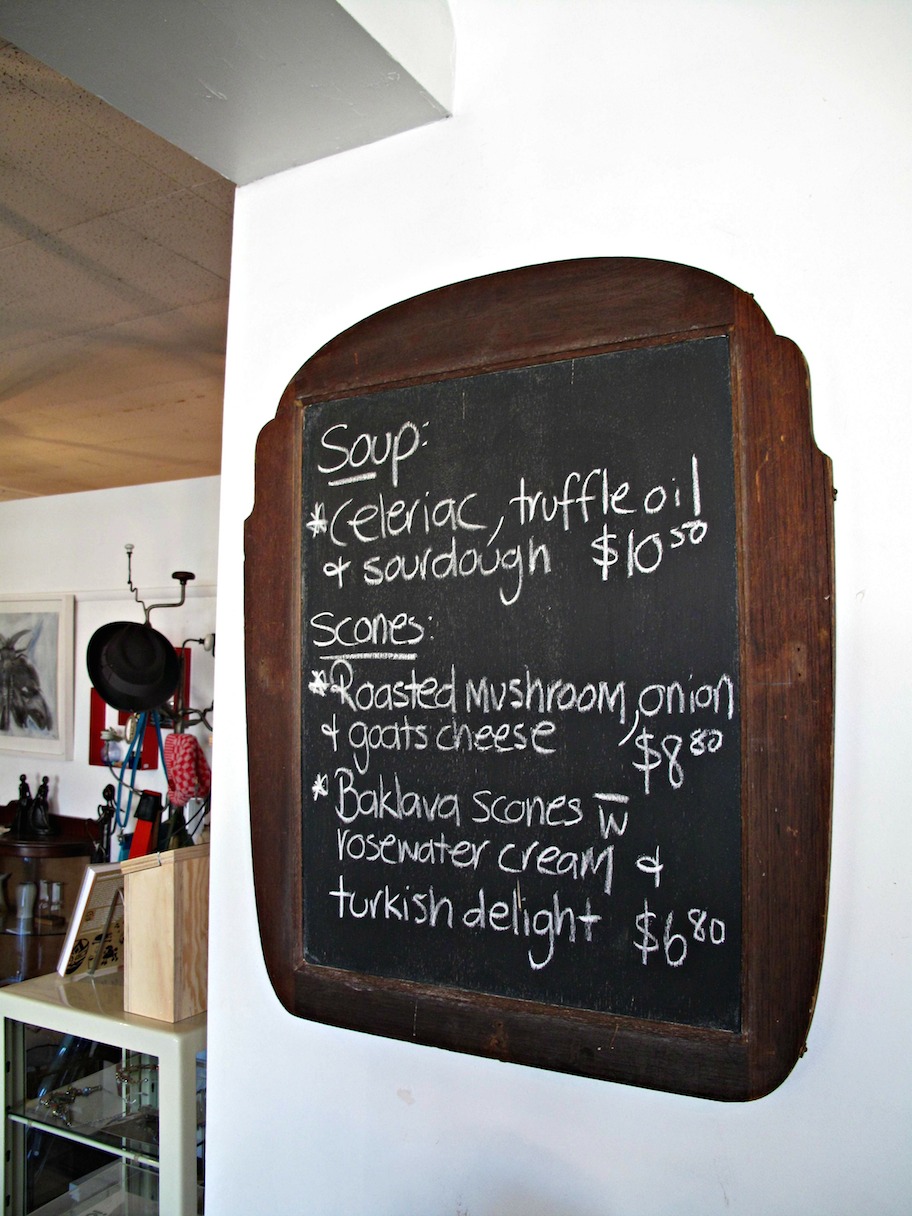 Soup:
*Celeriac, truffle oil
& sourdough $10 50
Scones:
*Roasted Mushroom, onion
& goats cheese $8 80
* Baklava scones w̅
rosewater cream &
turkish delight $6 80